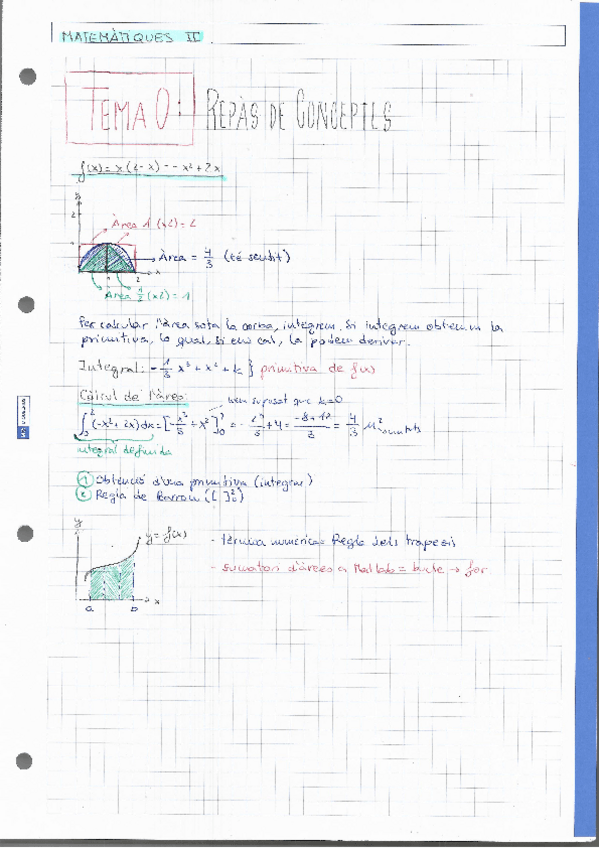 MATEMÀTIQUES II
TEMA 0: REPÀS DE CONCEPTES
f(x) = x(2-x) = -x² + 2x
y
2
Àrea 1 (x2) = 2
Àrea = 4/3 (té sentit)
1 2 x
Àrea 1/2 (x2) = 1
Per calcular l'àrea sota la corba, integrem. Si integrem obtenim la
primitiva, lo qual, si ens cal, la podem derivar.
Integral: -1/3 x³ + x² + k } primitiva de f(x)
Càlcul de l'àrea:
hem suposat que k=0
∫₀² (-x² + 2x) dx = [-x³/3 + x²]₀² = -2³/3 + 4 = (-8+12)/3 = 4/3 u²
integral definida
① Obtenció d'una primitiva (integrem)
② Regla de Barrow ([ ]²₀)
y
y = f(x)
- tècnica numèrica = Regla dels trapezis
- sumatori d'àrees a Matlab = bucle → for
a b x